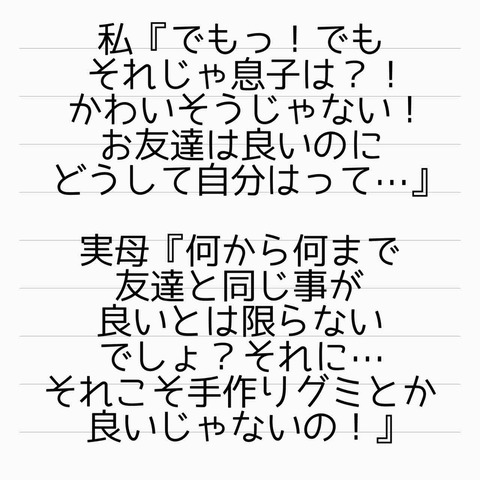 私『でもっ！でも
それじゃ息子は？！
かわいそうじゃない！
お友達は良いのに
どうして自分はって…』
実母『何から何まで
友達と同じ事が
良いとは限らない
でしょ？それに…
それこそ手作りグミとか
良いじゃないの！』